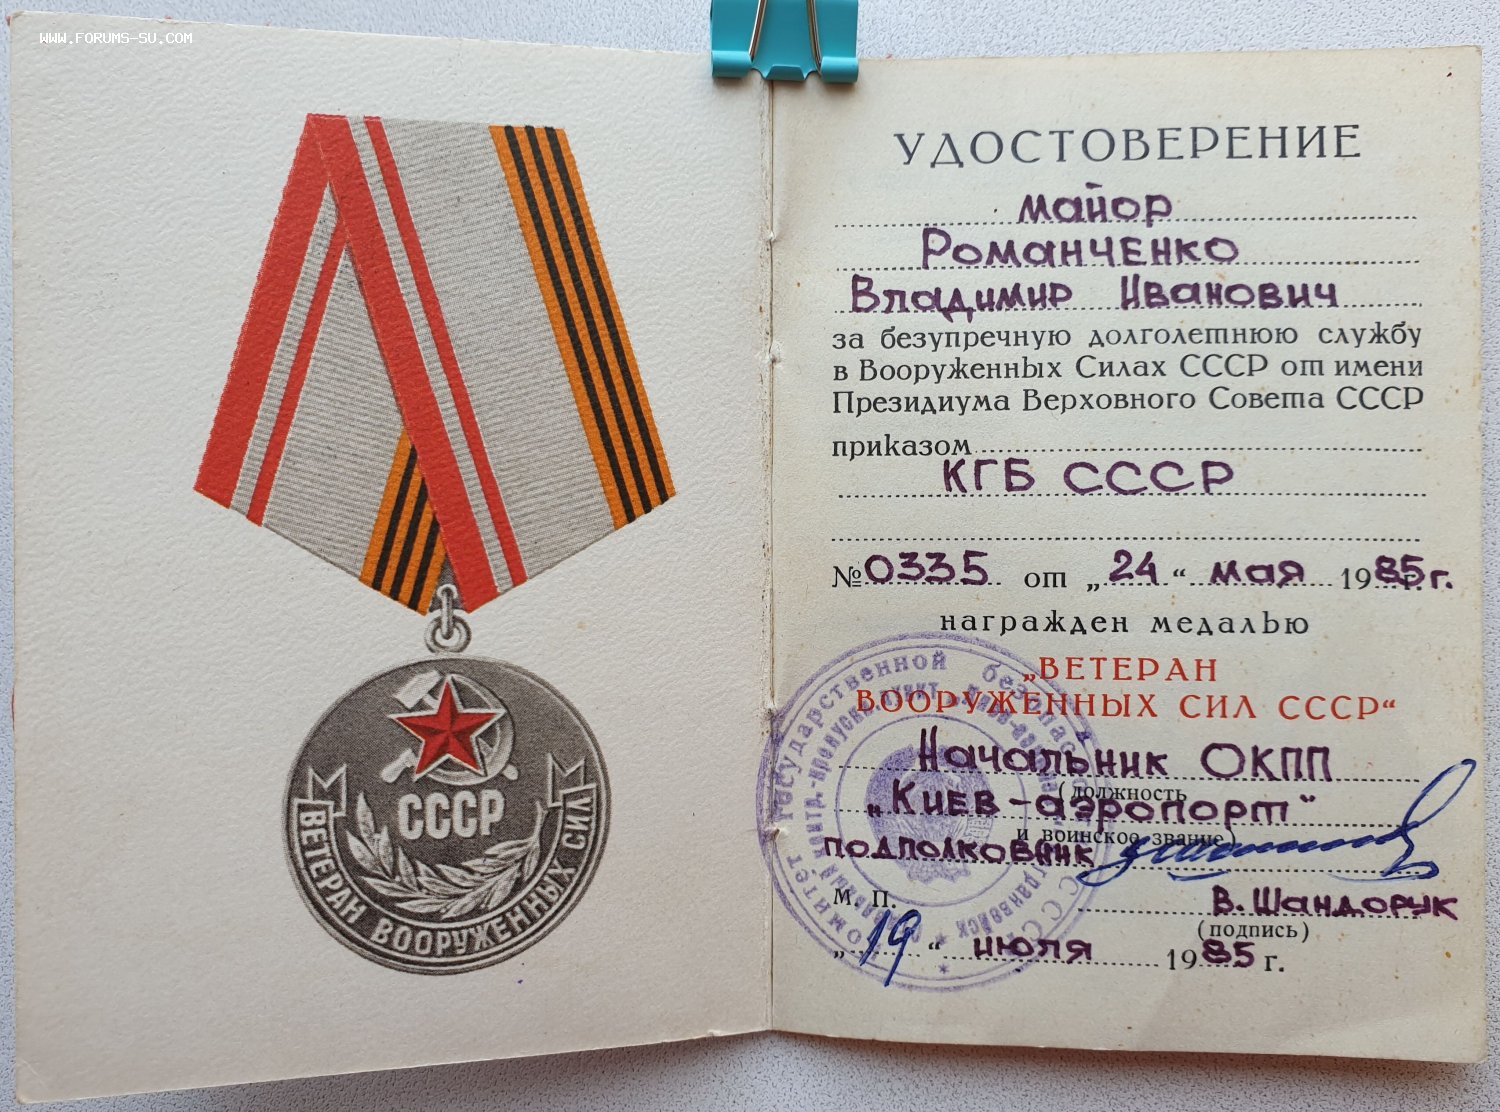 WWW.FORUMS-SU.COM
СССР
ВЕТЕРАН ВООРУЖЕННЫХ СИЛ
УДОСТОВЕРЕНИЕ
майор
Романченко
Владимир Иванович
за безупречную долголетнюю службу
в Вооруженных Силах СССР от имени
Президиума Верховного Совета СССР
приказом
КГБ СССР
№ 0335 от „24“ мая 1985 г.
награжден медалью
„ВЕТЕРАН
ВООРУЖЕННЫХ СИЛ СССР“
Начальник ОКПП
(должность
„Киев-аэропорт"
и воинское звание)
подполковник
В. Шандорук
М. П.
(подпись)
„19“ июля 1985 г.
Комитет государственной безопасности СССР